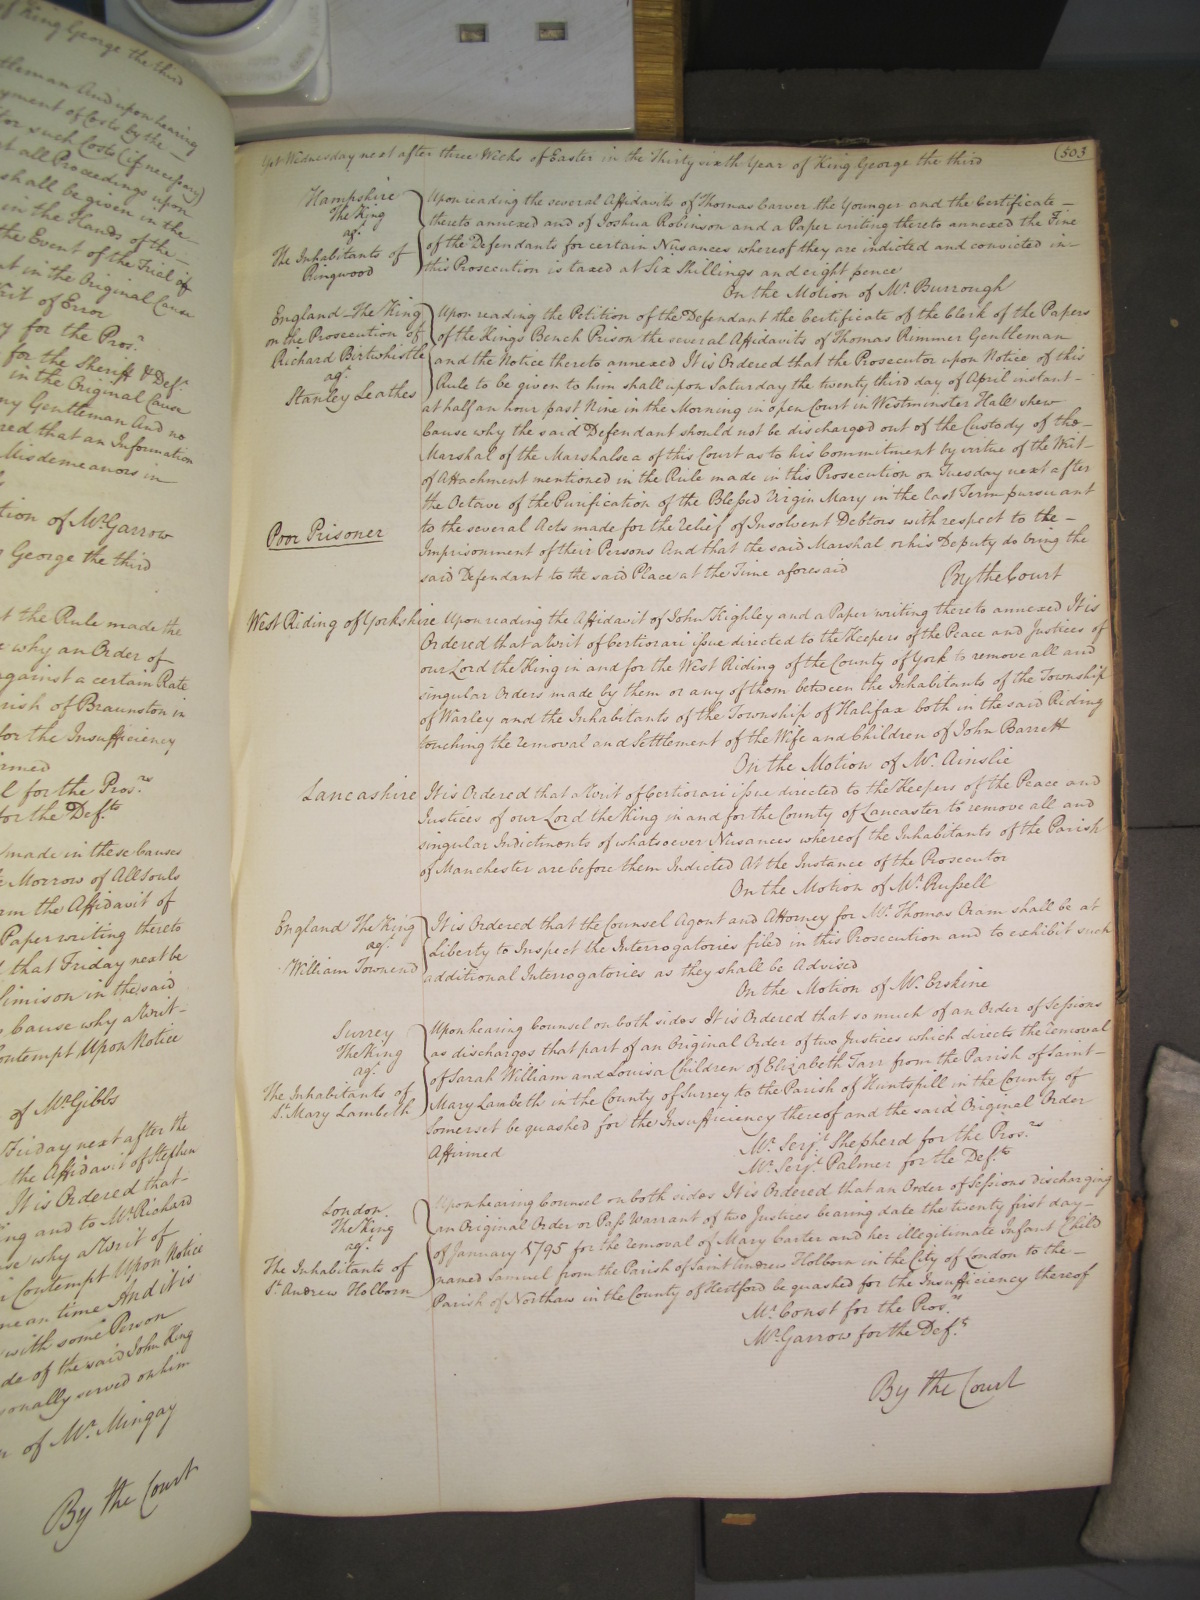 of King George the third
tleman And upon hearing
yment of Costs by the
for such Costs (if necessary)
t all Proceedings upon
shall be given in the
in the Hands of the
the Event of the Trial of
nt in the Original Cause
rit of Error
y for the Pros.r
for the Sheriff & Def.t
in the Original Cause
ny Gentleman And no
red that an Information
Misdemeanors in
tion of Mr Garrow
George the third
t the Rule made the
e why an Order of
against a certain Rate
rish of Braunston in
for the Insufficiency
rmed
l for the Pros.rs
for the Def.ts
made in these Causes
e Morrow of All Souls
rm the Affidavit of
Paper writing thereto
that Friday next be
limison in the said
Cause why a Writ
Contempt Upon Notice
of Mr Gibbs
Friday next after the
the Affidavit of Stephen
It is Ordered that
ng and to Mr Richard
se why a Writ of
Contempt Upon Notice
mean time And it is
with some Person
de of the said John King
onally served on him
of Mr Mingay
By the Court
Yet Wednesday next after three Weeks of Easter in the Thirty sixth Year of King George the third
303
Hampshire
The King
ag.t
The Inhabitants of
Ringwood
Upon reading the several Affidavits of Thomas Carver the Younger and the Certificate
thereto annexed and of Joshua Robinson and a Paper writing thereto annexed the Fine
of the Defendants for certain Nusances whereof they are indicted and convicted in
this Prosecution is taxed at Six Shillings and eight pence
On the Motion of Mr Burrough
England The King
on the Prosecution of
Richard Birtwhistle
ag.t
Stanley Leathes
Upon reading the Petition of the Defendant the Certificate of the Clerk of the Papers
of the Kings Bench Prison the several Affidavits of Thomas Rimmer Gentleman
and the Notice thereto annexed It is Ordered that the Prosecutor upon Notice of this
Rule to be given to him shall upon Saturday the twenty third day of April instant
at half an hour past Nine in the Morning in open Court in Westminster Hall shew
Cause why the said Defendant should not be discharged out of the Custody of the
Marshal of the Marshalsea of this Court as to his Commitment by virtue of the Writ
of Attachment mentioned in the Rule made in this Prosecution on Tuesday next after
the Octave of the Purification of the Blessed Virgin Mary in the last Term pursuant
Poor Prisoner
to the several Acts made for the relief of Insolvent Debtors with respect to the
Imprisonment of their Persons And that the said Marshal or his Deputy do bring the
said Defendant to the said Place at the Time aforesaid
By the Court
West Riding of Yorkshire
Upon reading the Affidavit of John Highley and a Paper writing thereto annexed It is
Ordered that a Writ of Certiorari issue directed to the Keepers of the Peace and Justices of
our Lord the King in and for the West Riding of the County of York to remove all and
singular Orders made by them or any of them between the Inhabitants of the Township
of Warley and the Inhabitants of the Township of Halifax both in the said Riding
touching the removal and Settlement of the Wife and Children of John Barrett
On the Motion of Mr Ainslie
Lancashire
It is Ordered that a Writ of Certiorari issue directed to the Keepers of the Peace and
Justices of our Lord the King in and for the County of Lancaster to remove all and
singular Indictments of whatsoever Nusances whereof the Inhabitants of the Parish
of Manchester are before them Indicted At the Instance of the Prosecutor
On the Motion of Mr Russell
England The King
ag.t
William Townend
It is Ordered that the Counsel Agent and Attorney for Mr Thomas Oram shall be at
Liberty to Inspect the Interrogatories filed in this Prosecution and to exhibit such
additional Interrogatories as they shall be Advised
On the Motion of Mr Erskine
Surrey
The King
ag.t
The Inhabitants of
St Mary Lambeth
Upon hearing Counsel on both sides It is Ordered that so much of an Order of Sessions
as discharges that part of an Original Order of two Justices which directs the removal
of Sarah William and Louisa Children of Elizabeth Tarr from the Parish of Saint
Mary Lambeth in the County of Surrey to the Parish of Huntspill in the County of
Somerset be quashed for the Insufficiency thereof and the said Original Order
Affirmed
Mr Serj.t Shepherd for the Pros.rs
Mr Serj.t Palmer for the Def.ts
London
The King
ag.t
The Inhabitants of
St Andrew Holborn
Upon hearing Counsel on both sides It is Ordered that an Order of Sessions discharging
an Original Order or Pass Warrant of two Justices bearing date the twenty first day
of January 1795 for the removal of Mary Carter and her illegitimate Infant Child
named Samuel from the Parish of Saint Andrew Holborn in the City of London to the
Parish of Northaw in the County of Hertford be quashed for the Insufficiency thereof
Mr Const for the Pros.rs
Mr Garrow for the Def.ts
By the Court